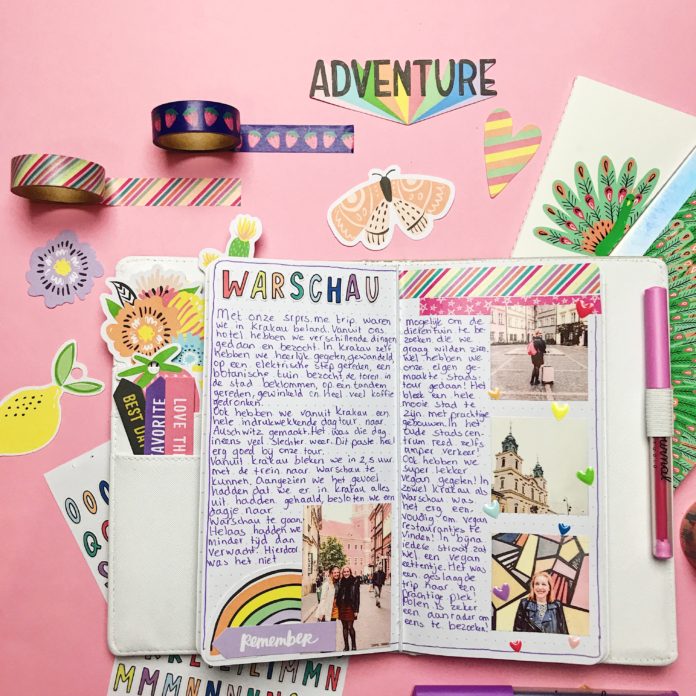 ADVENTURE
WARSCHAU
Met onze srprs.me trip waren
we in Krakau beland. Vanuit ons
hotel hebben we verschillende dingen
gedaan en bezocht. In Krakau zelf
hebben we heerlijk gegeten, gewandeld,
op een elektrische step gereden, een
botanische tuin bezocht, de toren in
de stad beklommen, op een tandem
gereden, gewinkeld en heel veel koffie
gedronken.
Ook hebben we vanuit Krakau een
hele indrukwekkende dagtour, naar
Auschwitz gemaakt. Het was die dag
ineens veel slechter weer. Dit paste heel
erg goed bij onze tour.
Vanuit Krakau bleken we in 2,5 uur
met de trein naar Warschau te
kunnen. Aangezien we het gevoel
hadden dat we er in Krakau alles
uit hadden gehaald, besloten we een
dagje naar
Warschau te gaan.
Helaas hadden we
minder tijd dan
verwacht. Hierdoor
was het niet
Remember
mogelijk om de
dierentuin te be-
zoeken die we
graag wilden zien.
Wel hebben we
onze eigen ge-
maakte stads-
tour gedaan! Het
bleek een hele
mooie stad te
zijn met prachtige
gebouwen. In het
oude stadscen-
trum reed zelfs
amper verkeer.
Ook hebben we
super lekker
vegan gegeten! In
zowel Krakau als
Warschau was
het erg een-
voudig om vegan
restaurantjes te
vinden! In bijna
iedere straat zat
wel een vegan
eettentje. Het was
een geslaagde
trip naar een
prachtige plek!
Polen is zeker
een aanrader om
eens te bezoeken!
BEST DAY
FAVORITE
LOVE TH